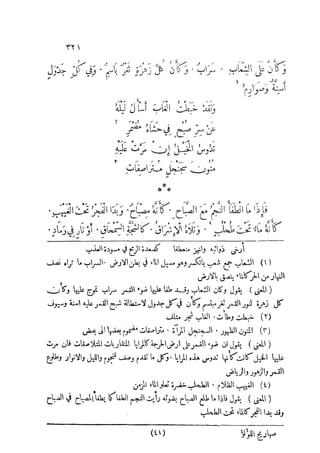 ٣٢١
وكأن على الشعاب . سراب . وكأن كل زهرة ثغر باسم . وفي كل جدول
أسنة وصوارم ١
ولقد خبطت الغاب أسأل ليله
عن سر صبح في حشاه مضمر ٢
تدوس الخيل إن مرت عليه
متون سجنجل متراصفات ٣
***
فإذا ما انطفأ النجم مع الصباح . كأنه مصباح . وبدا الفجر تحت الغيهب .
كأنه ماء تحت طحلب . وتلاه الإشراق . كالشجة السمحاق . أو نار في رماد .
أرخى ذوائبه وانهز منعطفا كصعدة الرمح في مسوده العذب
(١) الشعاب جمع شعب بالكسر وهو مسيل الماء في بطن الأرض . السراب ما تراه نصف
النهار من الحر كالماء يلصق بالأرض
(المعنى) يقول وكان الشعاب وقد طفا عليها ضوء القمر سراب تموج عليها وكأن
كل زهرة لنور القمر ثغر مبتسم وكأن في كل جدول لاستطالة شبح القمر عليه اسنة وسيوف
(٢) خبطت وطأت . الغاب شجر ملتف
(٣) المتون الظهور . السجنجل المرآة . متراصفات مضموم بعضها الى بعض
(المعنى) يقول ان ضوء القمر على أرض الحرجة كالمرايا المتقاربات المتلاصقات فان مرت
عليها الخيل كانت كأنها تدوس هذه المرايا . وكل ما تقدم وصف النجوم والليل والانوار وطلوع
القمر والزهور والرياض
(٤) الغيهب الظلام . الطحلب خضرة تعلو الماء المزمن
(المعنى) يقول فاذا ما طلع الصباح بضوئه رأيت النجم انطفأ كما يطفأ المصباح في الصباح
وقد بدا الفجر كالماء تحت الطحلب
صهاريج اللؤلؤ
(٤١)